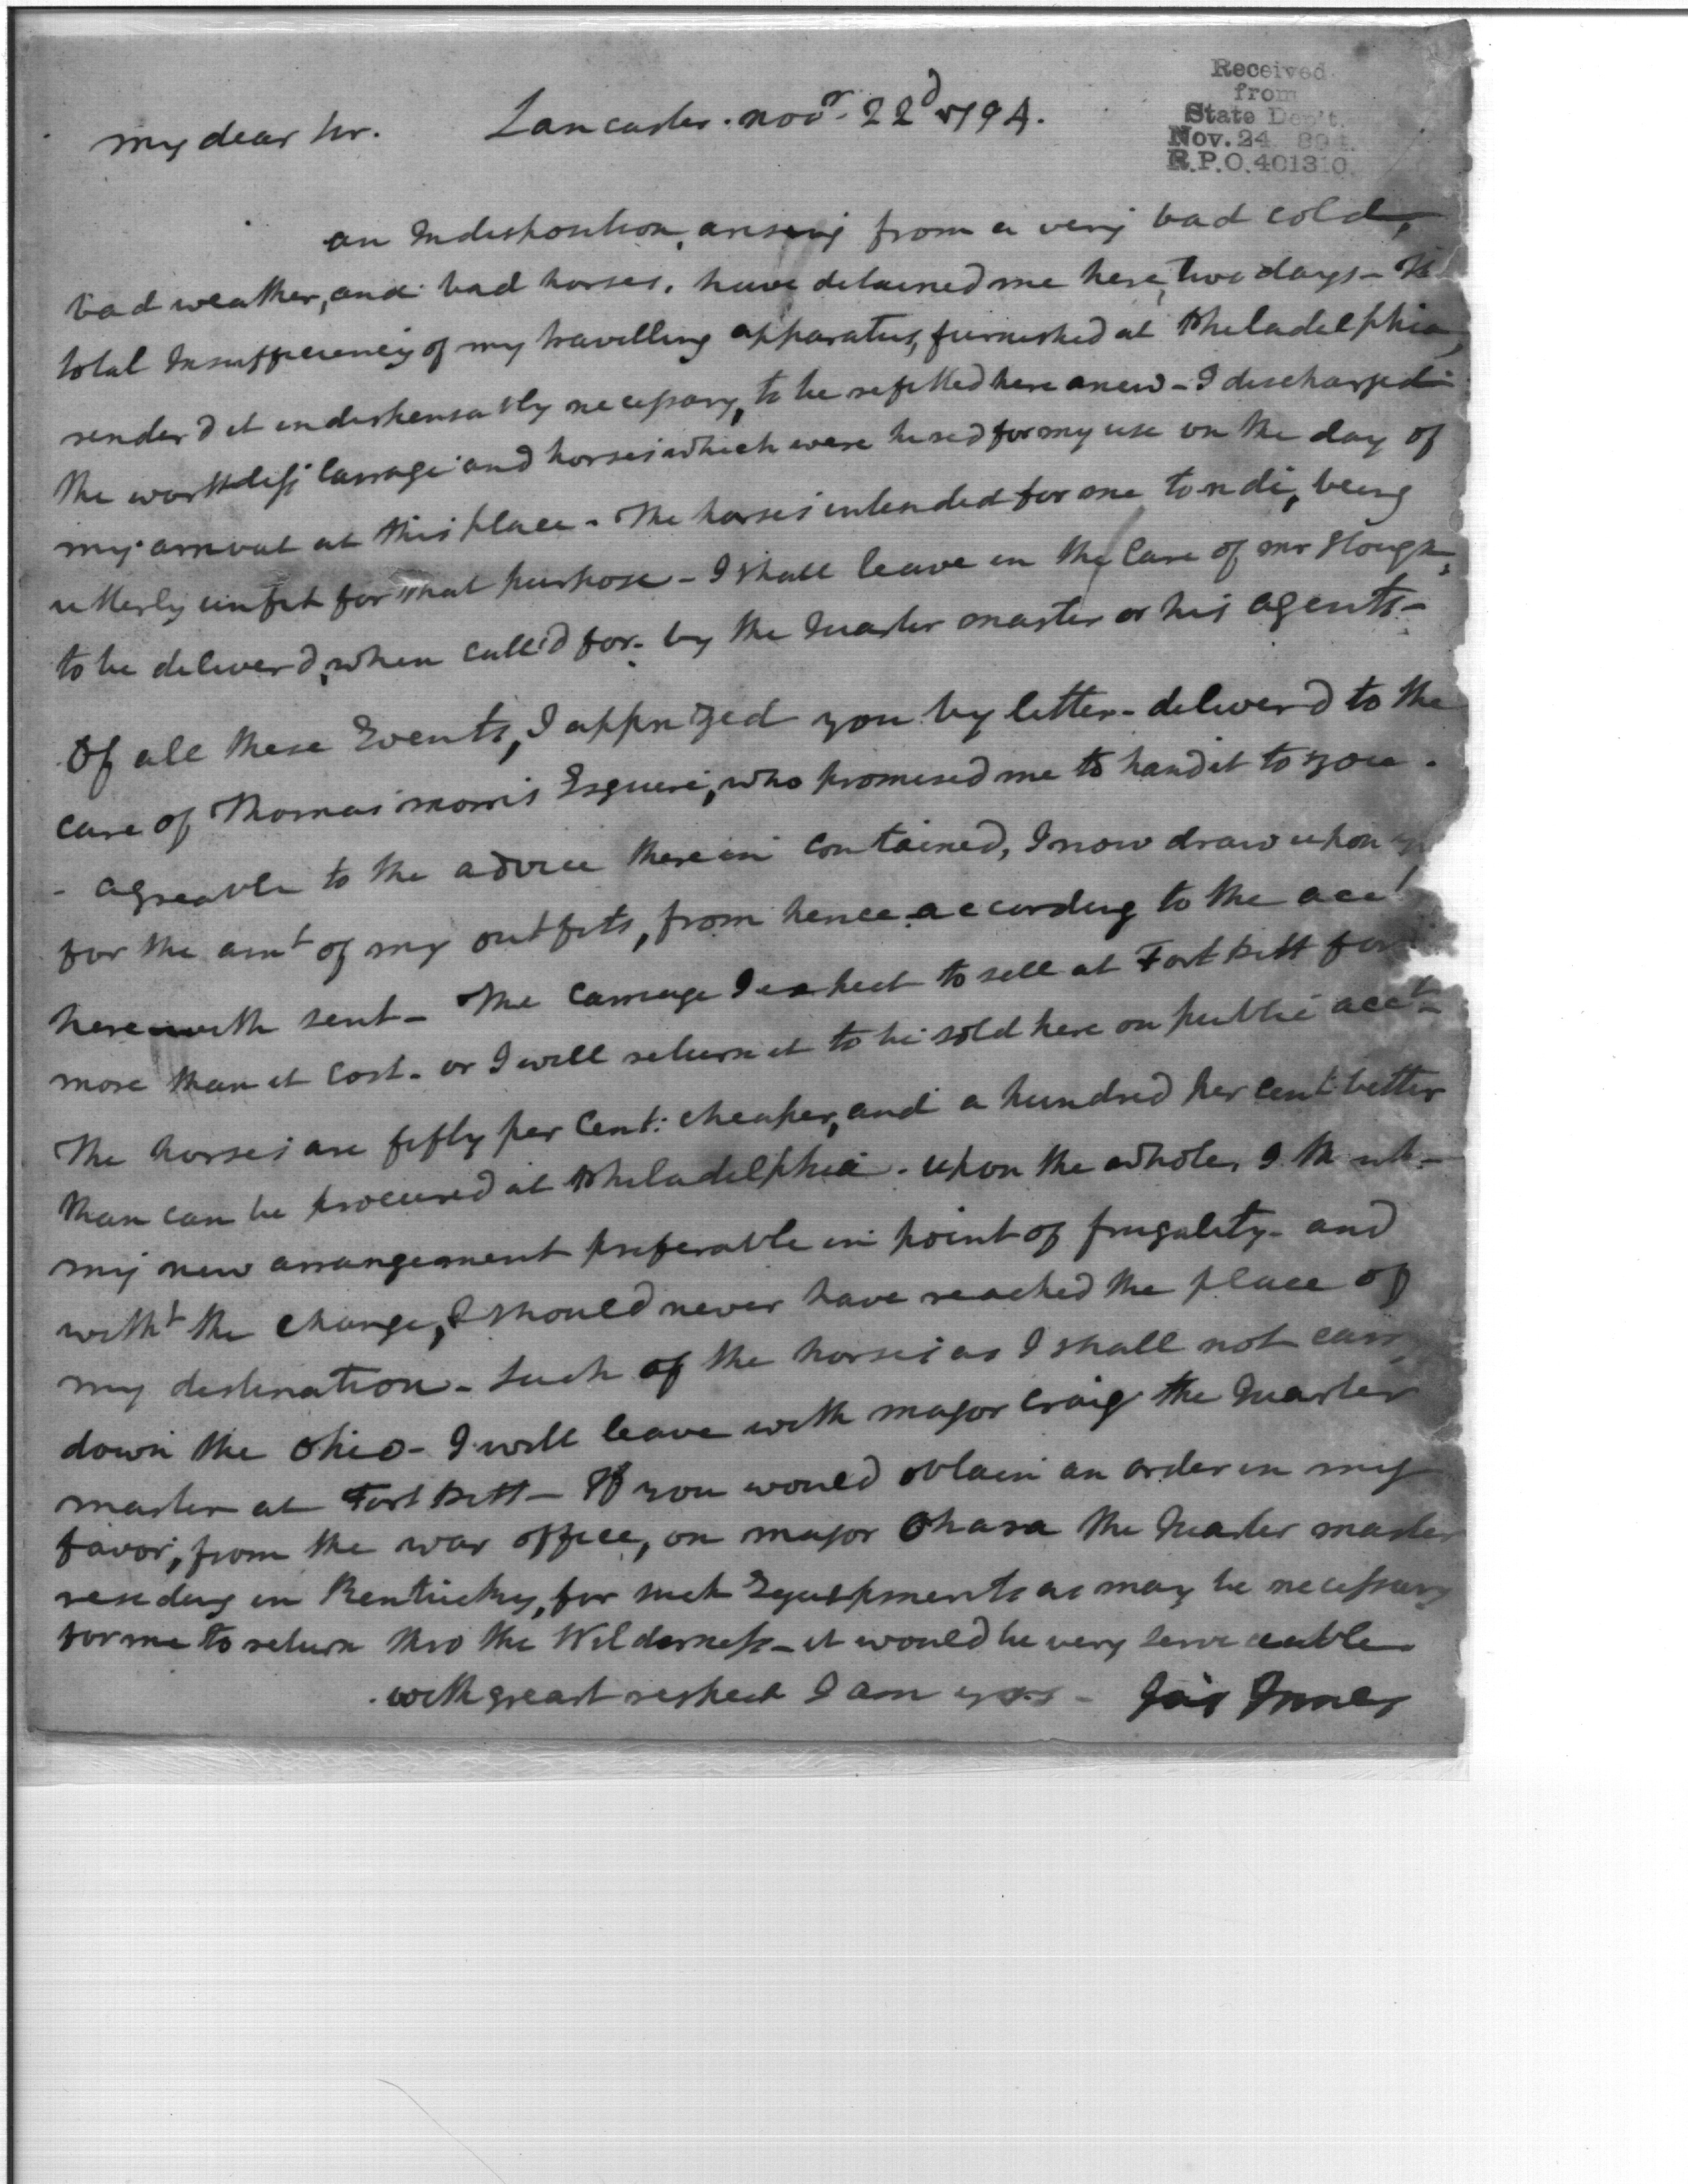 Received
from
State Dep't.
Nov. 24 89
R.P.O. 401310.
my dear Sir. Lancaster. novr. 22d 1794.
an Indisposition, arising from a very bad cold,
bad weather, and bad horses, have detained me here, two days - The
total Insufficiency of my travelling apparatus, furnished at Philadelphia,
renderd it indispensably necessary, to be refitted here anew - I discharged
the worthless Carrage and horses which were hired for my use on the day of
my arrival at this place - The horses intended for me to ride, being
utterly unfit for that purpose - I shall leave in the Care of mr Slough,
to be deliverd, when call'd for. by the Quarter master or his agents -
Of all these Events, I apprized you by letter - deliverd to the
care of Thomas morris Esquire, who promised me to hand it to you.
- agreable to the advice therein contained, I now draw upon
for the amt of my outfits, from hence according to the acct
herewith sent - The Carriage I expect to sell at Fort Pitt for
more than it cost - or I will return it to be sold here on public acct -
The horses are fifty per Cent: cheaper, and a hundred per cent better
than can be procured at Philadelphia - upon the whole, I think
my new arrangement preferable in point of frugality - and
witht the change, I should never have reached the place of
my destination - Such of the horses as I shall not carry
down the Ohio - I will leave with major Craig the Quarter
master at Fort Pitt - If you would obtain an order in my
favor, from the war office, on major Ohara the Quarter master
residing in Kentucky, for such Equipments as may be necessary
for me to return thro the Wilderness - it would be very serviceable
with great respect I am yrs - Jas Innes